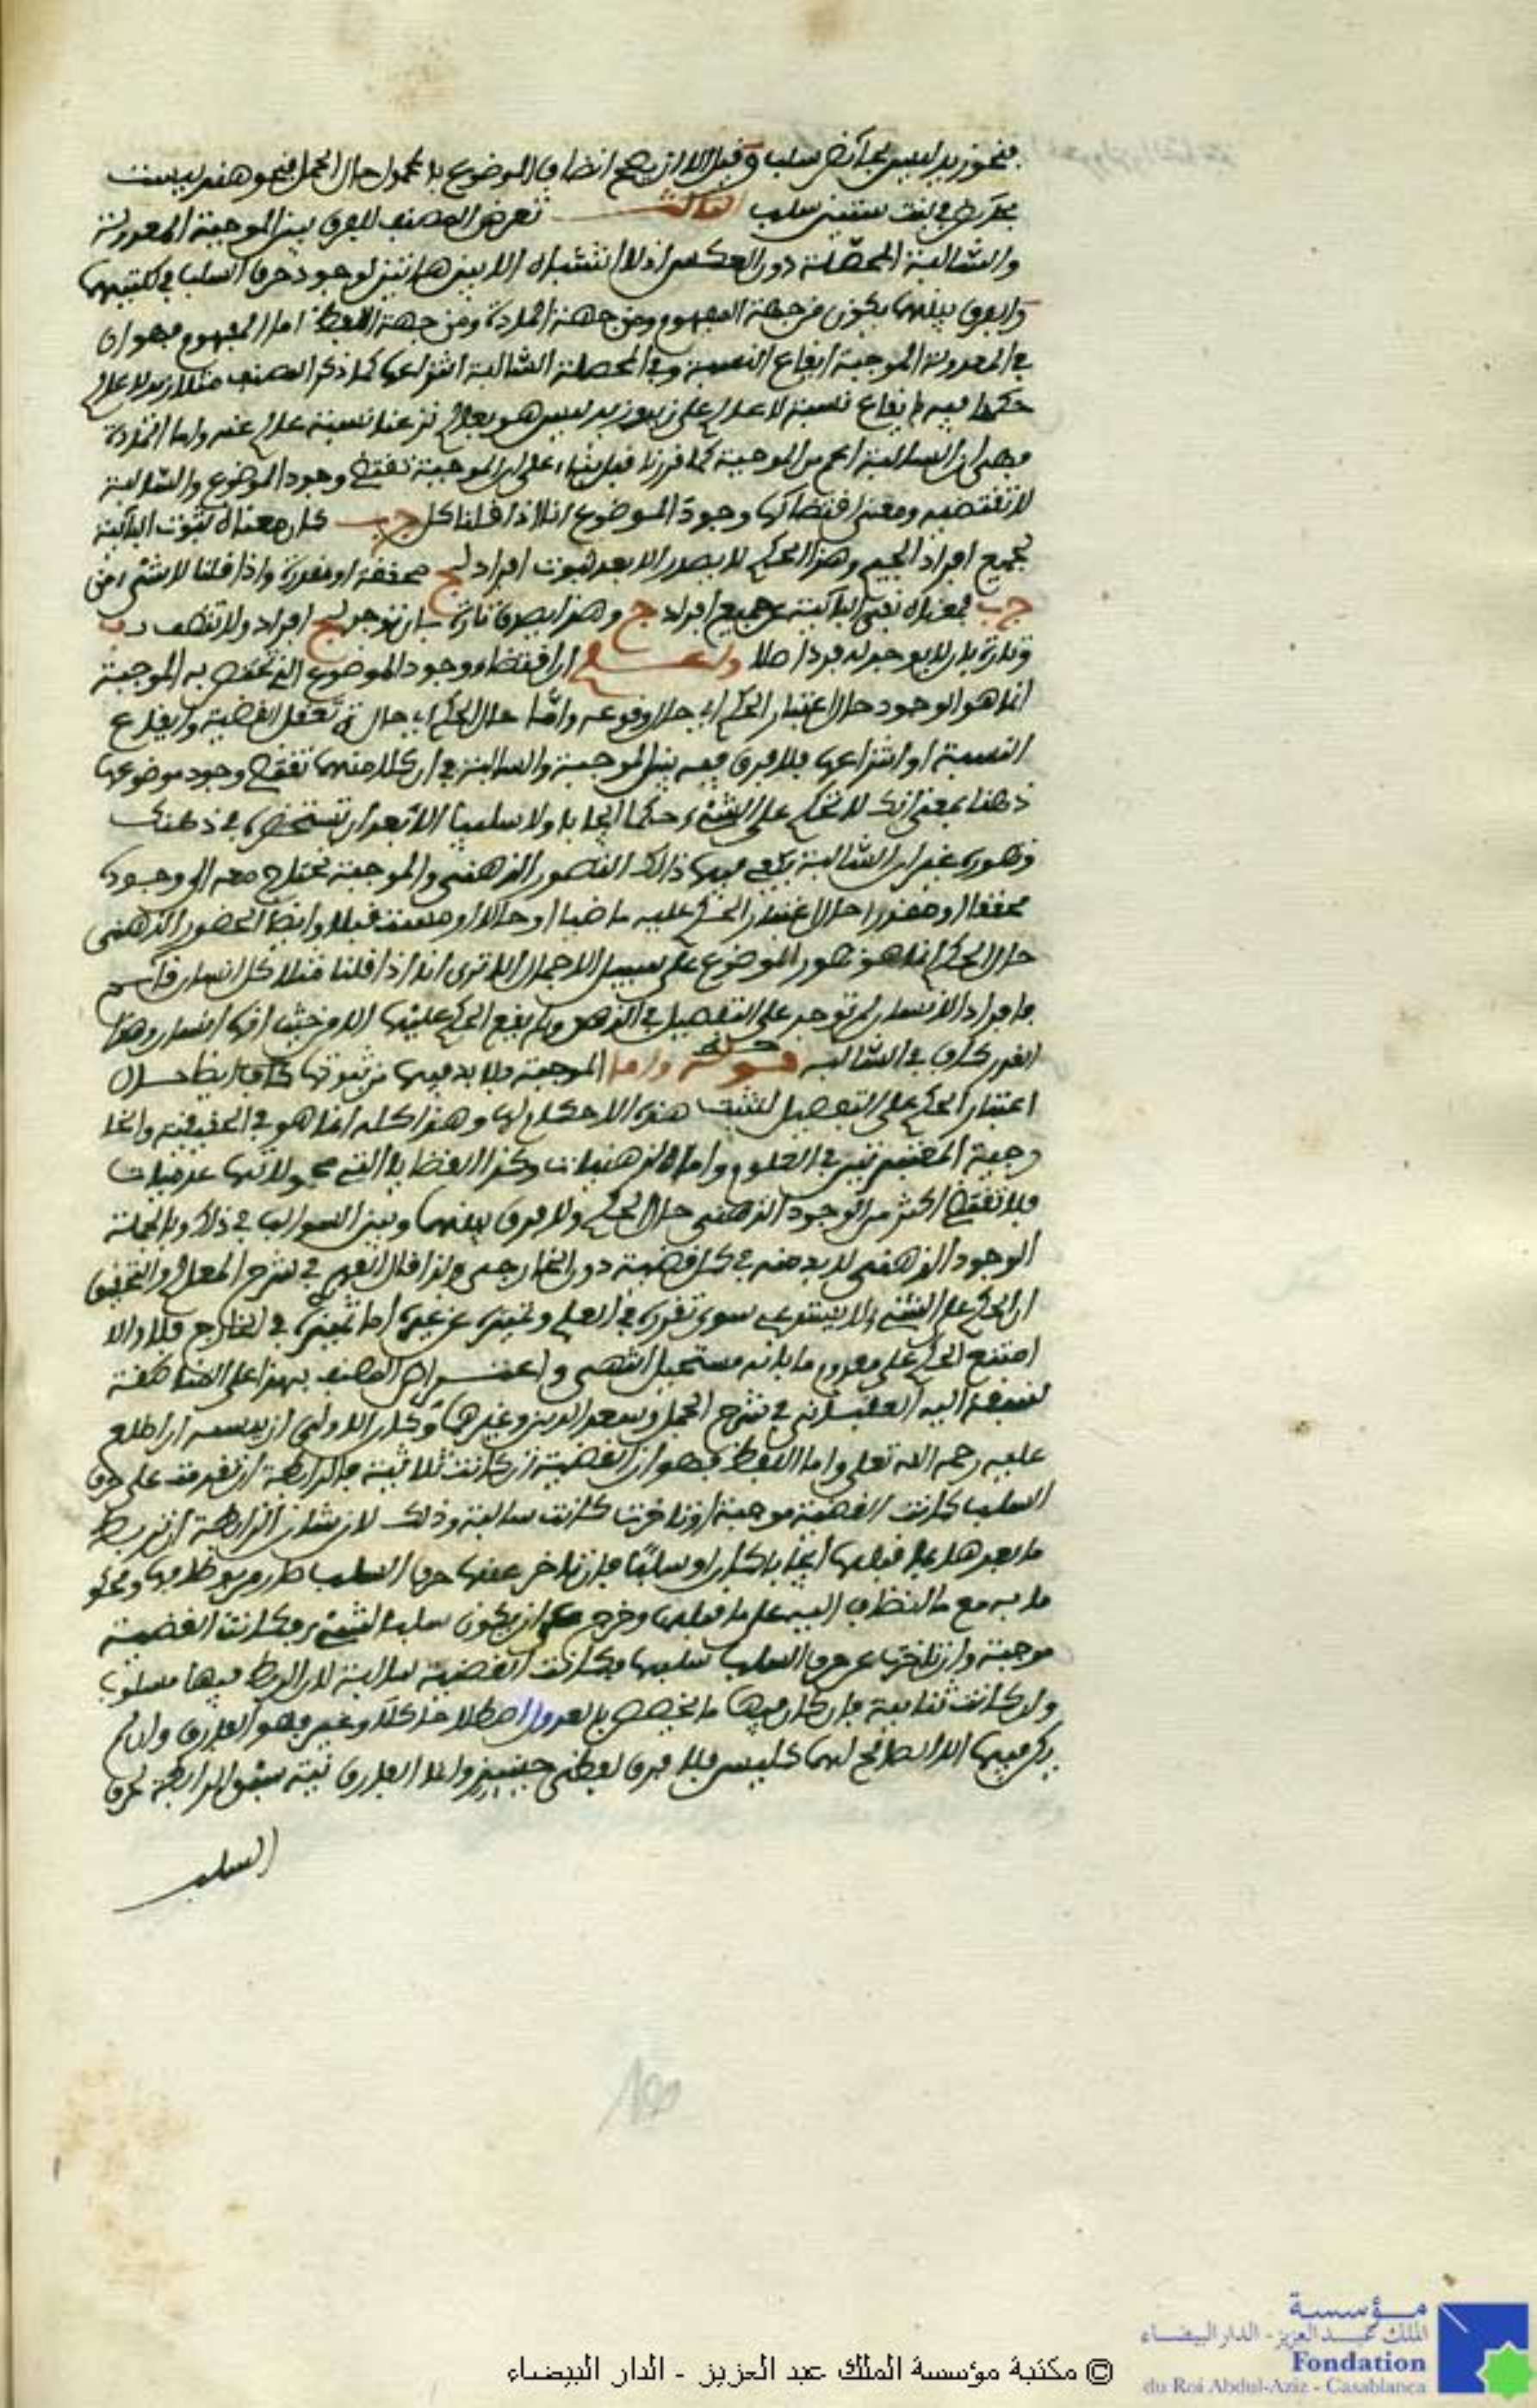 فنحو زيد ليس بجائز سلب وقيل لا ان يصح اتصاف الموضوع بالمحمول حال الحمل فنحو هند ليست
سلب الثالث تعرض المصنف للفرق بين الموجبة المعدولة
والسالبة المحصلة دون العكس اذ لا اشتباه الا بين هاتين لوجود حرف السلب في كلتيهما
والفرق بينهما يكون من جهة المفهوم ومن جهة المادة ومن جهة اللفظ اما المفهوم فهو ان
في المعدولة الموجبة ايقاع النسبة وفي المحصلة السالبة انتزاعها كما ذكر المصنف مثلا زيد لا عالم
حكمنا فيه بايقاع نسبة لا عالم على زيد وزيد ليس هو بعالم نزعنا نسبة عالم عنه واما المادة
فهي ان السالبة اعم من الموجبة كما قررنا قبل بناء على ان الموجبة تقتضي وجود الموضوع والسالبة
لا تقتضيه ومعنى اقتضائها وجود الموضوع انا اذا قلنا كل ج ب كان معناه ثبوت البائية
لجميع افراد الجيم وهذا الحكم لا يصدق الا بعد ثبوت افراد لج محققة او مقدرة واذا قلنا لا شيء من
ج ب فمعناه نفي البائية عن جميع افراد ج وهذا يصدق تارة بان توجد لج افراد ولا تتصف بب
وتارة بان لا يوجد له فرد اصلا واعلم ان اقتضاء وجود الموضوع الذي تختص به الموجبة
انما هو الوجود حال اعتبار الحكم اي حال وقوعه واما حال الحكم اي حال تعقل القضية وايقاع
النسبة او انتزاعها فلا فرق فيه بين الموجبة والسالبة في ان كلا منهما تقتضي وجود موضوعها
ذهنا بمعنى انك لا تحكم على الشيء حكما ايجابا ولا سلبا الا بعد ان تستحضره في ذهنك
وتصوره غير ان السالبة يكفي فيها ذلك التصور الذهني والموجبة تحتاج معه الى وجود
محققا او مقدرا حال اعتبار الحكم عليه ماضيا او حالا او مستقبلا وايضا الحضور الذهني
حال الحكم انما هو تصور الموضوع على سبيل الاجمال الا ترى انا اذا قلنا مثلا كل انسان
فافراد الانسان لم توجد على التفصيل في الذهن ولم يقع الحكم عليها الا من حيث انها انسان وهذا
القدر كاف في السالبة قوله واما الموجبة فلا بد فيها من ثبوتها كاف ايضا حال
اعتبار الحكم على التفصيل لتثبت هذه الاحكام لها وهذا كله انما هو في الحقيقية والخا
رجية المعتبرتين في العلوم واما الذهنيات وكذا القضايا التي محمولاتها عدميات
فلا تقتضي اكثر من الوجود الذهني حال الحكم ولا فرق بينها وبين السوالب في ذلك وبالجملة
الوجود الذهني لا بد منه في كل قضية دون الخارجي ولذا قال الفهري في شرح المعالم والتحقيق
ان الحكم على الشيء لا يستدعي سوى تقرره في العلم وتميزه عن غيره اما تميزه في الخارج فلا والا
امتنع الحكم على معدوم ما بانه مستحيل انتهى واعتراض المصنف بهذا على المناطقة
لسبقه اليه العقباني في شرح الجمل وسعد الدين وغيرهما وكان الاولى ان ينسبه ان اطلع
عليه رحمه الله تعالى واما اللفظ فهو ان القضية ان كانت ثلاثية فالرابطة ان تقدمت على حرف
السلب كانت القضية موجبة او تاخرت كانت سالبة وذلك لان شان الرابطة ان تربط
ما بعدها بما قبلها ايجابا كان او سلبا فان تاخر عنها حرف السلب صار مربوطا بها
ما به مع ما انضاف اليه على ما قبلها وخرج عن ان يكون سلبا لشيء فكانت القضية
موجبة وان تاخرت عن حرف السلب سلبها فكانت القضية سالبة لان الربط فيها مسلوب
وان كانت ثنائية فان كان فيها ما يختص بالعدول اصطلاحا كلا وغير فهو الفارق وان لم
يكن فيها الا الصالح لهما كليس فلا فرق لفظي حينئذ وانما الفارق نية سبق الرابطة لحرف
السلب
مؤسسة
الملك عبد العزيز - الدار البيضاء
Fondation
du Roi Abdul-Aziz - Casablanca
© مكتبة مؤسسة الملك عبد العزيز - الدار البيضاء